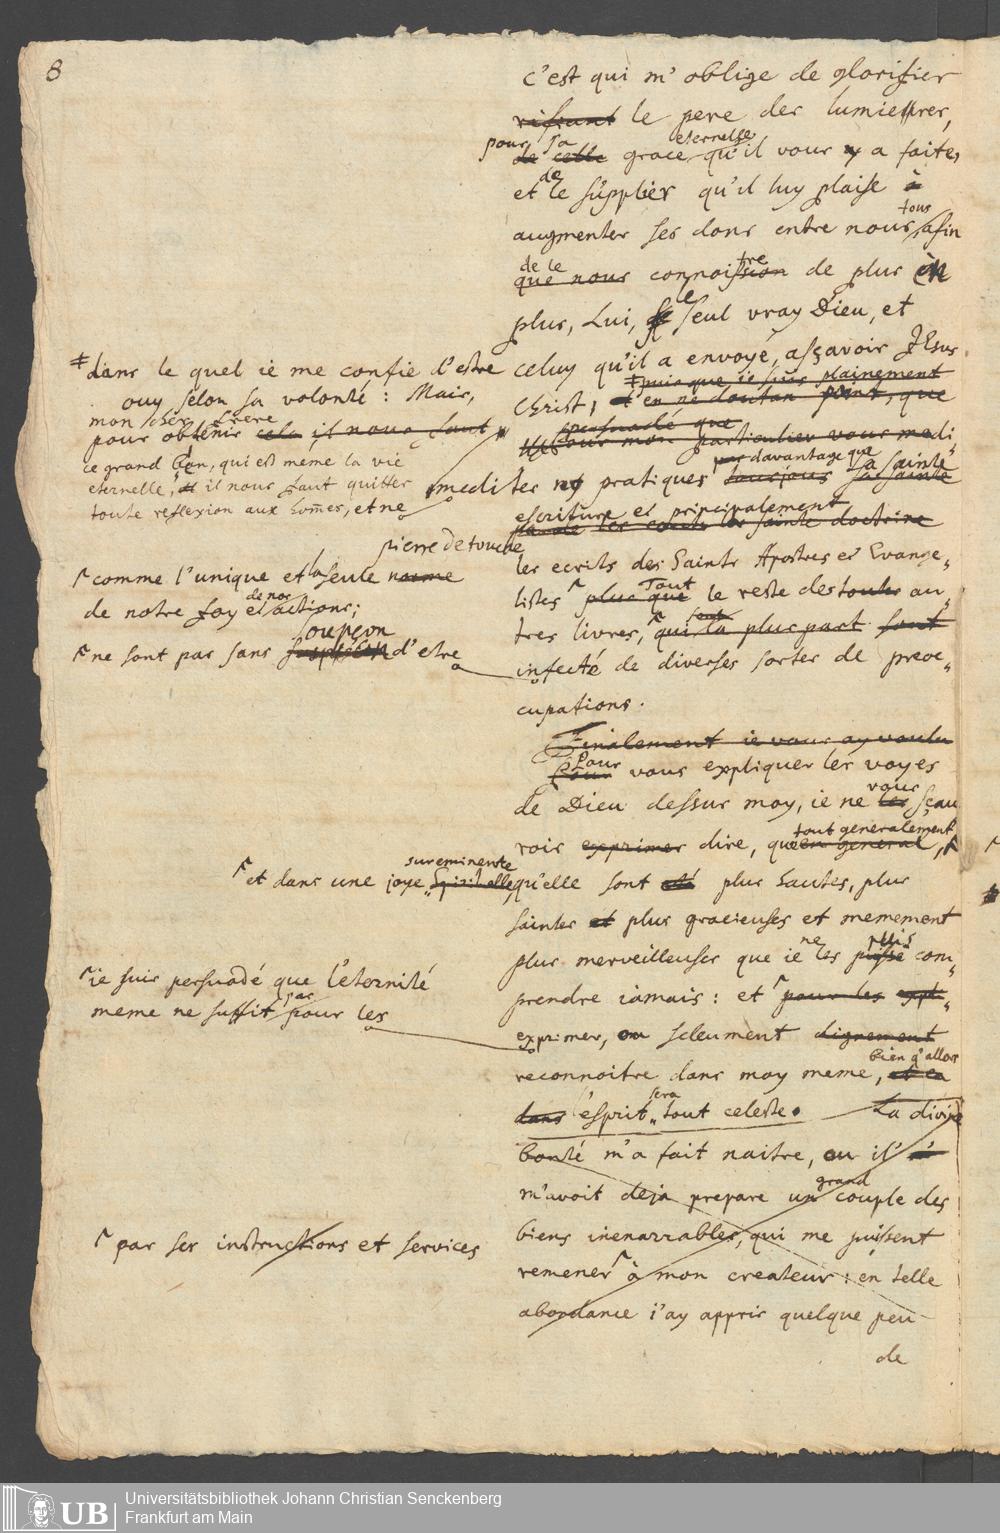 8
c'est qui m'oblige de glorifier
rifiant le pere des lumieres,
pour sa eternelle
de cette grace qu'il vous y a faite,
de
et le supplier qu'il luy plaise à
tous
augmenter ses dons entre nous, afin
de le tre
que nous connoission de plus en
plus, Lui, le seul vray Dieu, et
celuy qu'il a envoyé, asçavoir JEsus
puisque ie suis plainement
Christ, et en ne doutan point, que
persuadé que
pour mon particulier vous medi,
par davantage que sa sainte
mediter ny pratiques tousjours sa sainte
escriture et principalement
parole les sainte doctrine
les ecrits des Saints Apostres et Evange„
Tout
listes plus que le reste des toutes au„
sont
tres livres, qui la plus part sont
infecté de diverses sortes de preoc„
cupations.
Finalement ie vous ay voulu
Pour
Pour vous expliquer les voyes
vous
de Dieu dessur moy, ie ne les sçau
tout generalement
rois exprimer dire, que en general,
qu'elle sont eté plus hautes, plus
saintes et plus gracieuses et memement
ne puis
plus merveilleuses que ie les puisse com„
prendre iamais: et pour les expl„
exprimer, ou seleument dignement
bien q' allors
reconnoitre dans moy meme, et en
sera
dans l'esprit„ tout celeste. La divine
bonté m'a fait naitre, ou il'
grand
m'avoit deja prepare un couple des
biens inenarrables, qui me puissent
remener à mon createur: en telle
abondance i'ay appris quelque peu
de
dans le quel ie me confie d'estre
ouy selon sa volonté: Mais,
mon cher Frere
pour obtenir cela il nous faut
ce grand Don, qui est meme la vie
eternelle, et il nous faut quitter
toute reflexion aux hom̄es, et ne
pierre de touche
comme l'unique et la seule norme
de nos
de notre foy et actions;
soupçon
ne sont pas sans suspicion d'etre
sureminente
et dans une joye„ Spirituelle,
ie suis persuadé que l'eternité
par
meme ne suffit pour les
par ses instructions et services
UB
Universitätsbibliothek Johann Christian Senckenberg
Frankfurt am Main